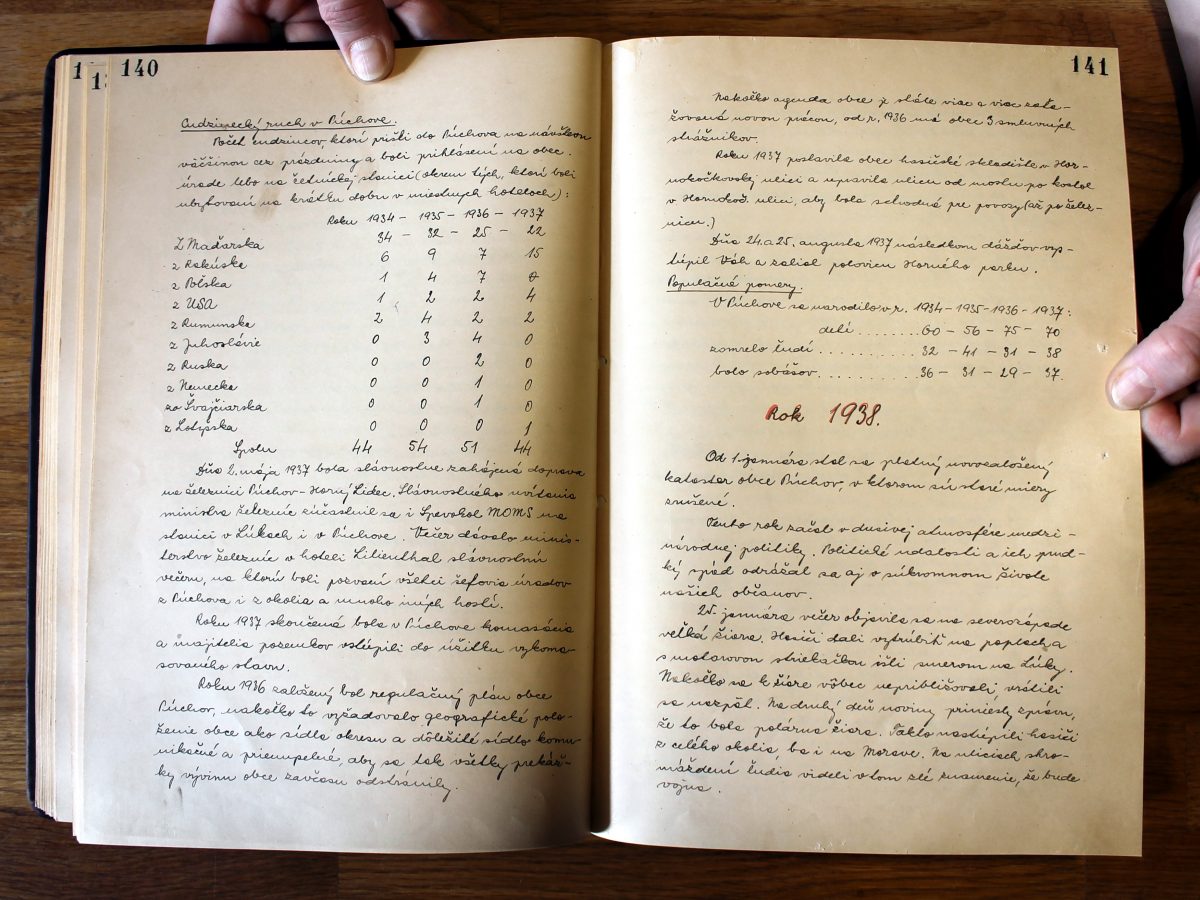 140
Cudzinecký ruch v Púchove.
Počet cudzincov, ktorí prišli do Púchova na návštevu
väčšinou cez prázdniny a boli prihlásení na obec.
úrade lebo na četníckej stanici (okrem tých, ktorí boli
ubytovaní na krátku dobu v miestnych hoteloch):
Roku 1934 - 1935 - 1936 - 1937
Z Maďarska 34 - 32 - 25 - 22
z Rakúska 6 9 7 15
z Poľska 1 4 7 0
z USA 1 2 2 4
z Rumunska 2 4 2 2
z Juhoslávie 0 3 4 0
z Ruska 0 0 2 0
z Nemecka 0 0 1 0
zo Švajčiarska 0 0 1 0
z Lotyšska 0 0 0 1
Spolu 44 54 51 44
Dňa 2. mája 1937 bola slávnostne zahájená doprava
na železnici Púchov-Horní Lideč. Slávnostného uvítania
ministra železníc zúčastnil sa i Spevokol MOMS na
stanici v Lúkach i v Púchove. Večer dávalo minis-
terstvo železníc v hoteli Lilienthal slávnostnú
večeru, na ktorú boli pozvaní všetci šéfovia úradov
z Púchova i z okolia a mnoho iných hostí.
Roku 1937 skončená bola v Púchove komasácia
a majitelia pozemkov vstúpili do úžitku vykoma-
sovaného stavu.
Roku 1936 založený bol regulačný plán obce
Púchov, nakoľko to vyžadovalo geografické polo-
ženie obce ako sídla okresu a dôležité sídlo komu-
nikačné a priemyselné, aby sa tak všetky prekáž-
ky vývinu obce zavčasu odstránily.
141
Nakoľko agenda obce je stále viac a viac zaťa-
žovaná novou prácou, od r. 1936 má obec 3 smluvných
strážnikov.
Roku 1937 postavila obec hasičské skladište v Hor-
nokočkovskej ulici a upravila ulicu od mostu po kostol
v Hornokoč. ulici, aby bola schodná pre povozy (až po želez-
nicu.)
Dňa 24. a 25. augusta 1937 následkom dážďov vys-
túpil Váh a zalial polovicu Horného parku.
Populačné pomery.
V Púchove sa narodilo v r. 1934 - 1935 - 1936 - 1937:
detí ........ 60 - 56 - 75 - 70
zomrelo ľudí ............ 32 - 41 - 31 - 38
bolo sobášov ............ 36 - 31 - 29 - 37.
Rok 1938.
Od 1. januára stal sa platný novozaložený
kataster obce Púchov, v ktorom sú staré miery
zrušené.
Tento rok začal v dusivej atmosfére medzi-
národnej politiky. Politické udalosti a ich prud-
ký spád odrážal sa aj o súkromnom živote
našich občanov.
25. januára večer objavila sa na severozápade
veľká žiara. Hasiči dali vztrúbiť na poplach a
s motorovou striekačkou išli smerom na Lúky.
Nakoľko sa k žiare vôbec nepribližovali, vrátili
sa nazpäť. Na druhý deň noviny priniesly zprávu,
že to bola polárna žiara. Takto nastúpili hasiči
z celého okolia, ba i na Morave. Na uliciach shro-
máždení ľudia videli v tom zlé znamenie, že bude
vojna.